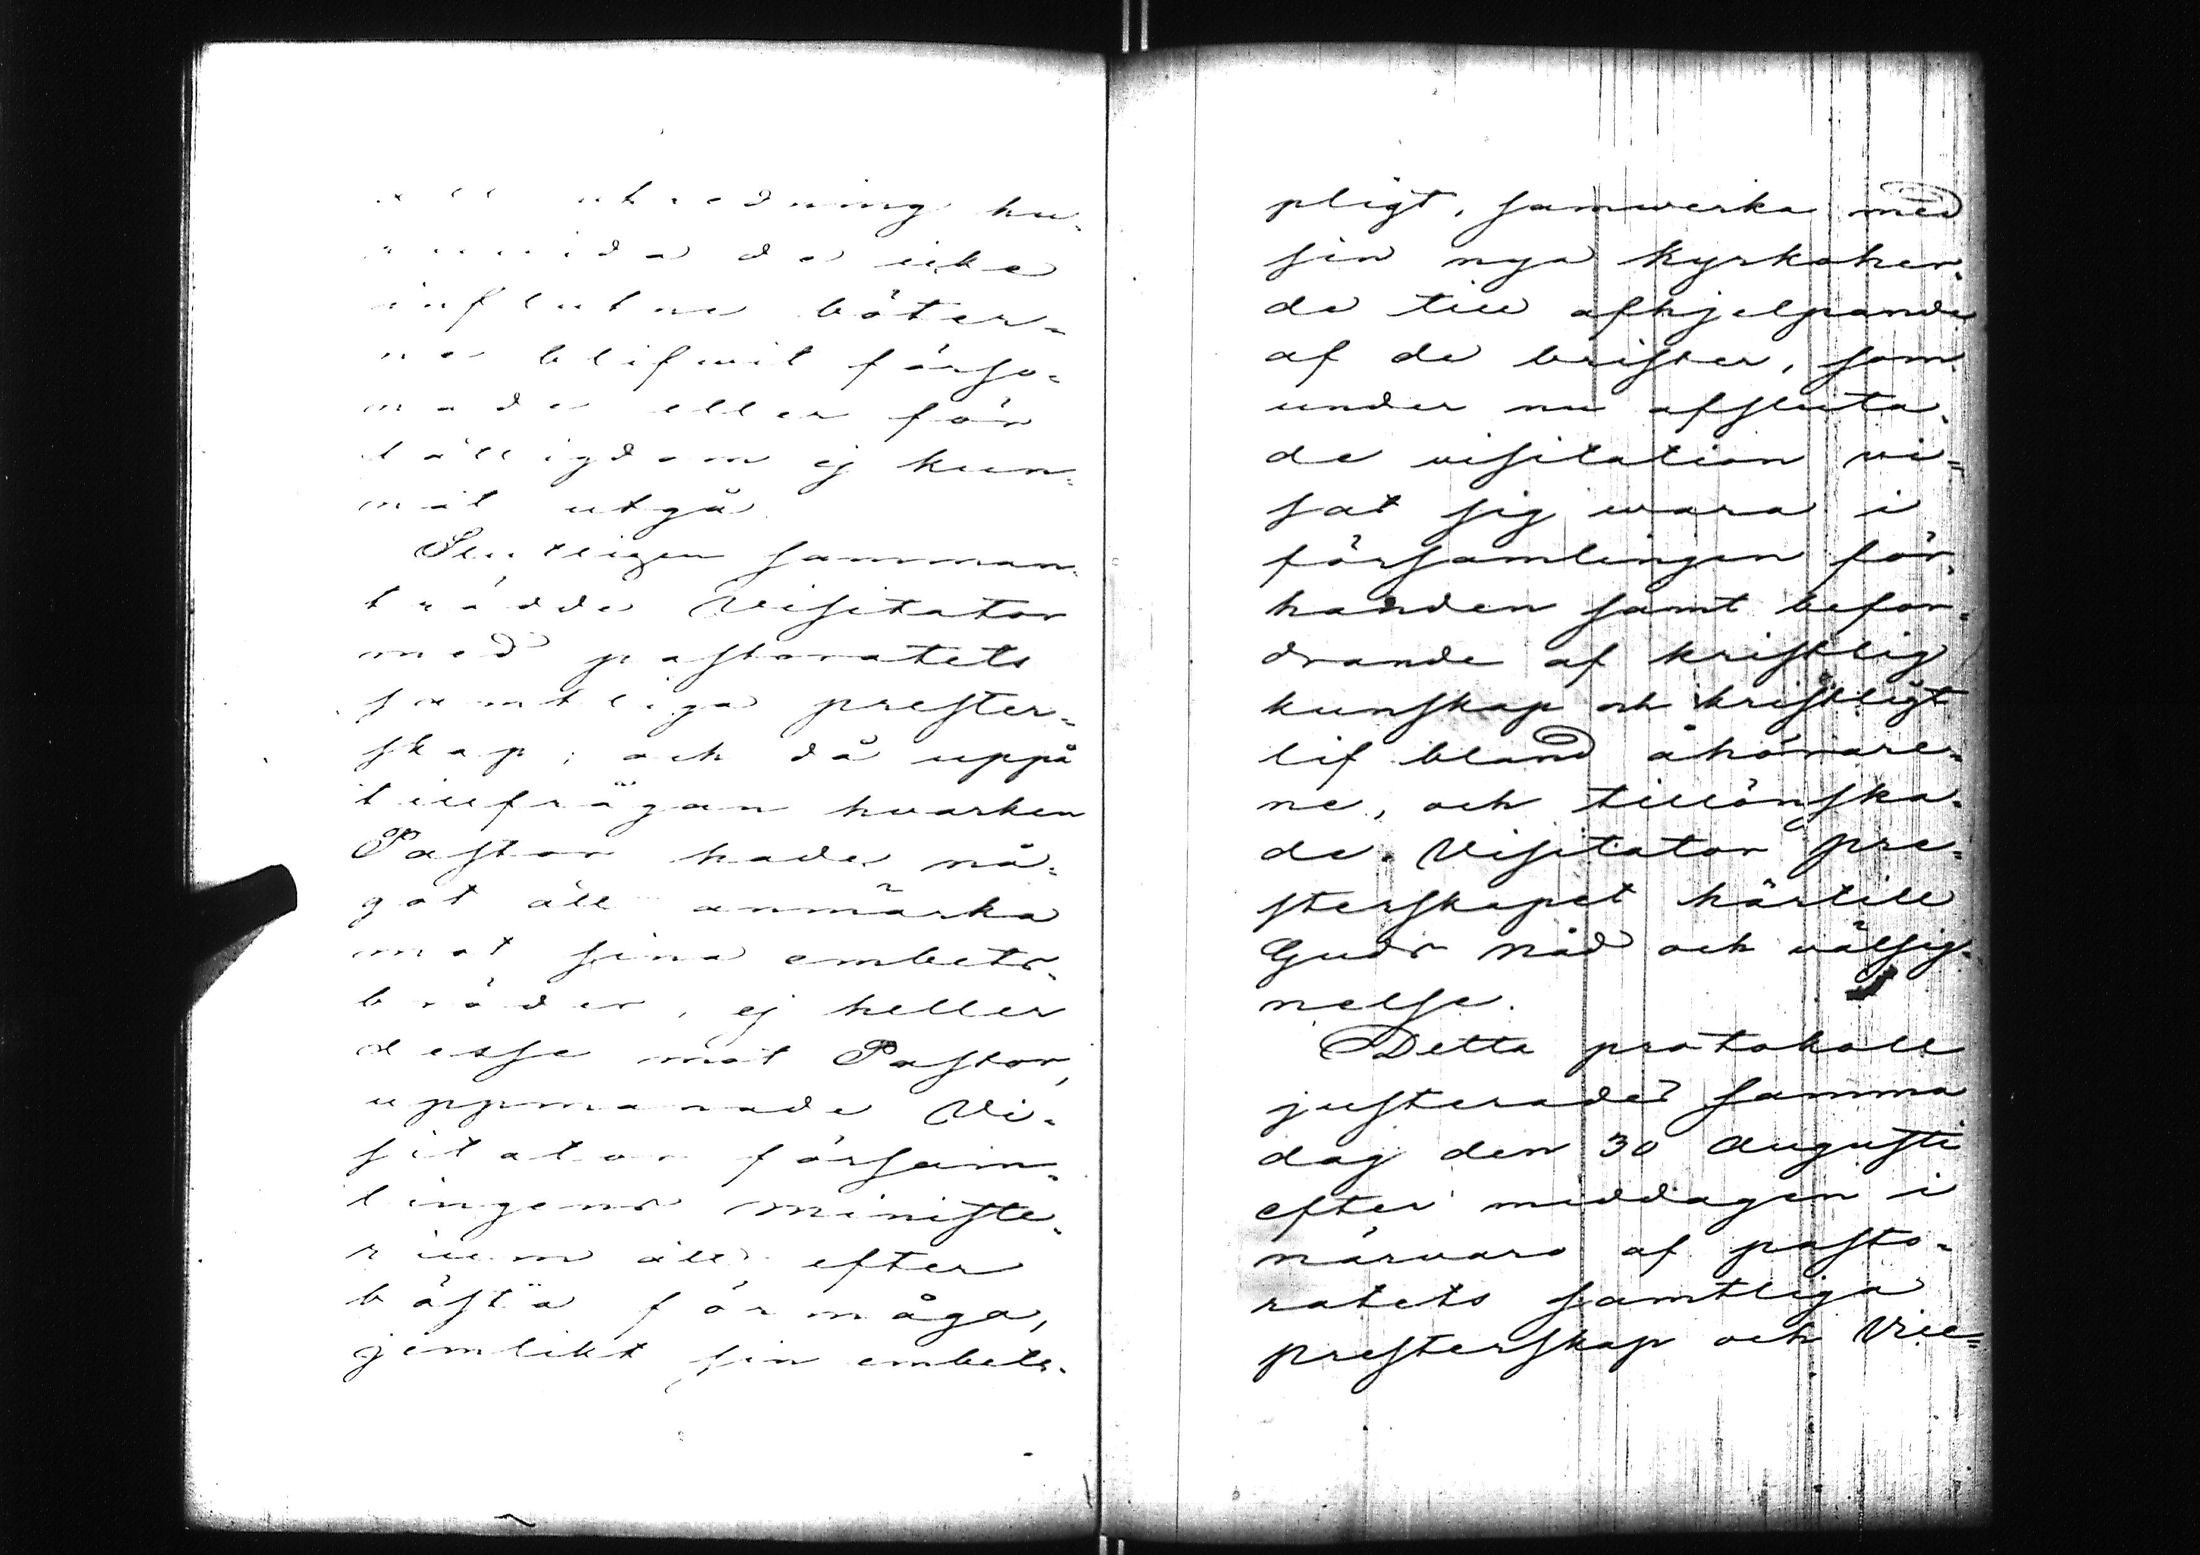 utredning hu-
ruvida de icke
influtne böter-
na blifwit förso-
nade eller för
fattigdom ej kun-
nat utgå.
Slutligen samman-
trädde Visitator
med pastoratets
samtliga prester-
skap; och då uppå
tillfrågan hvarken
Pastor hade nå-
got att anmärka
mot sina embets-
bröder, ej heller
desse mot Pastor,
uppmanade Vi-
sitator försam-
lingens ministe-
rium att efter
bästa förmåga,
jemlikt sin embets-
pligt, samwerka med
sin nya kyrkoher-
de till afhjelpande
af de brister, som
under nu afsluta-
de visitation vi-
sat sig wara i
församlingen för-
handen samt befor-
drande af kristlig
kunskap och kristligt
lif bland åhörare-
ne, och tillönska-
de Visitator pre-
sterskapet härtill
Guds nåd och välsig-
nelse.
Detta protokoll
justerades samma
dag den 30 Augusti
efter middagen i
närvaro af pasto-
ratets samtliga
presterskap och Vice-